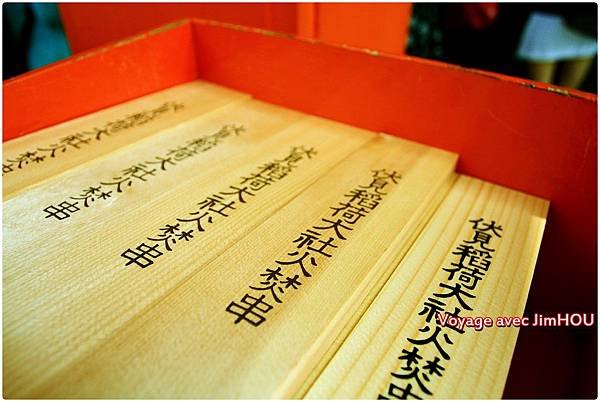 伏見稲荷大社火焚串
伏見稲荷大社火焚串
伏見稲荷大社火焚串
伏見稲荷大社火焚串
伏見稲荷大社火焚串
Voyage avec JimHOU